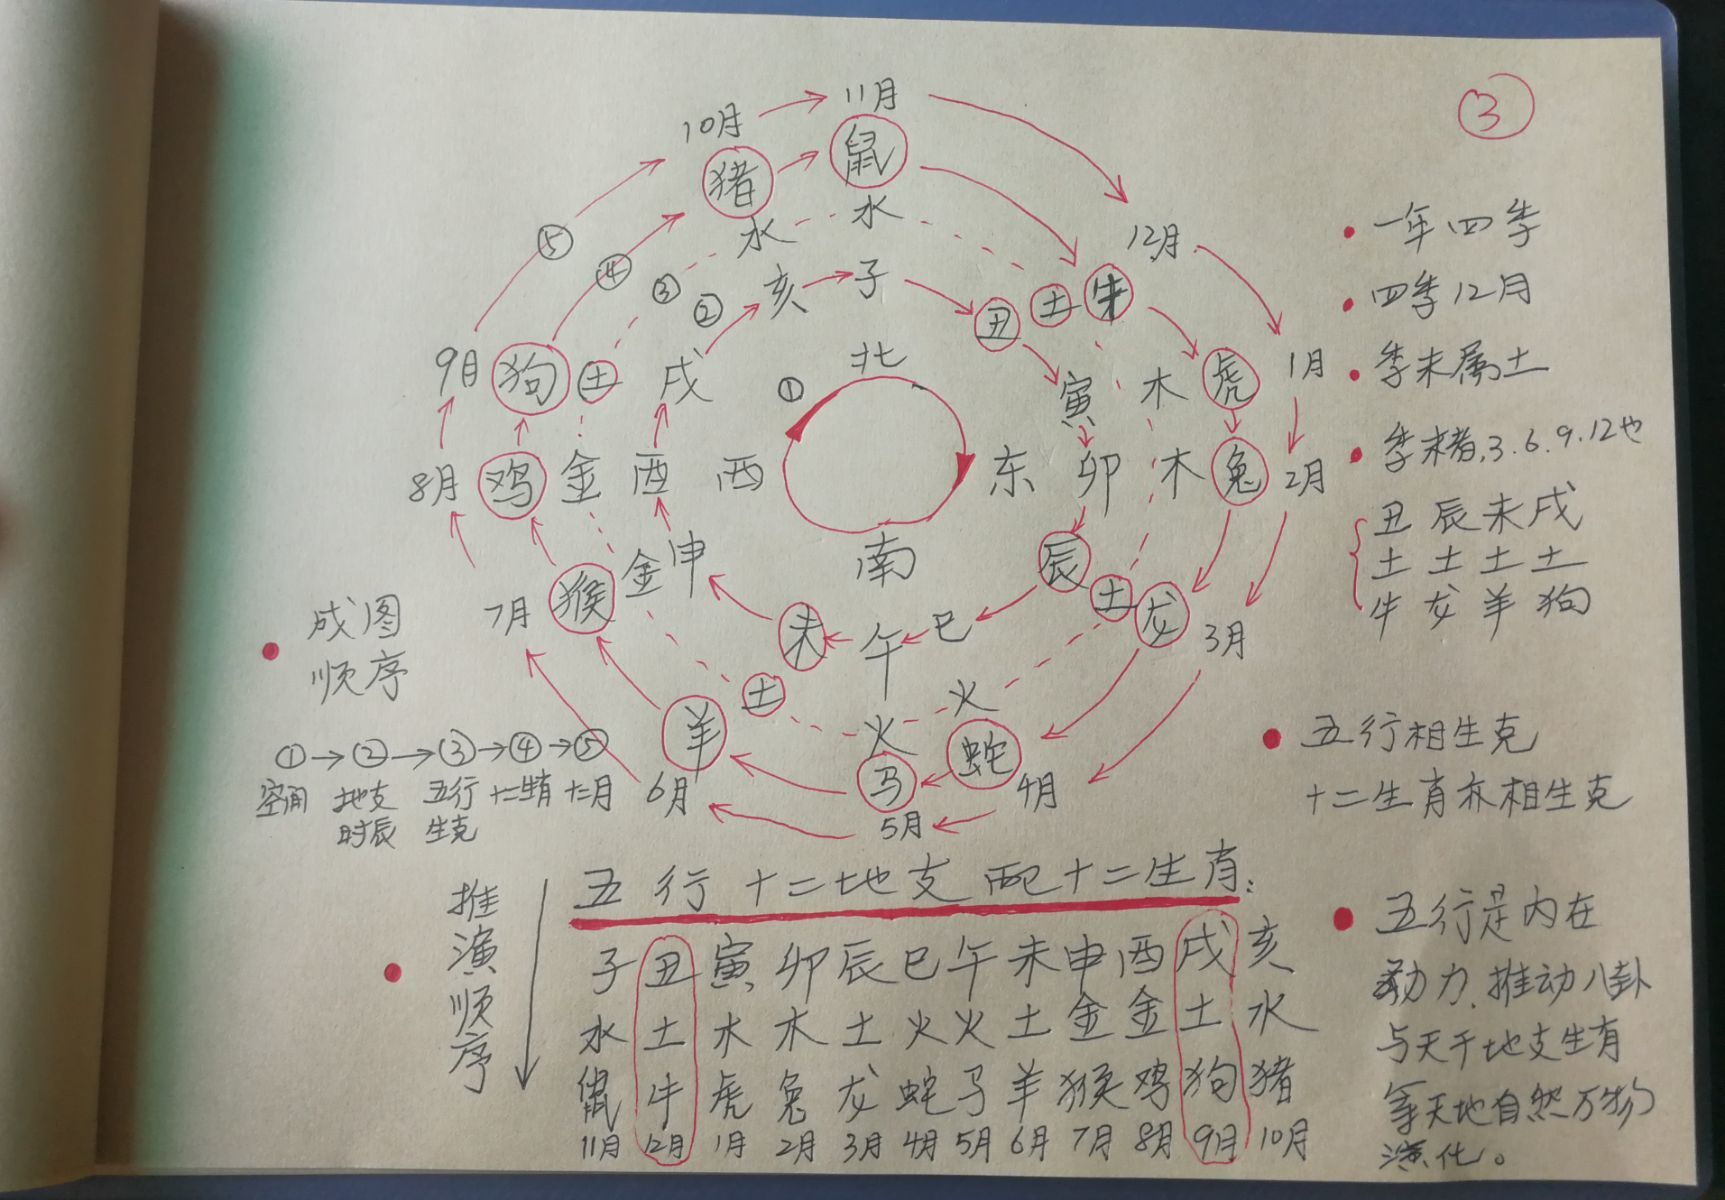 ③
10月 11月
猪 鼠
水 水
⑤ ④ ③ ②
12月
亥 子
丑 土 牛
9月 狗 土 戌 ① 北 寅 木 虎 1月
8月 鸡 金 酉 西 东 卯 木 兔 2月
7月 猴 金 申 南 辰 土 龙 3月
未 午 巳
土 火 火
羊 马 蛇
6月 5月 4月
一年四季
四季12月
季末属土
季末者,3.6.9.12也
丑 辰 未 戌
土 土 土 土
牛 龙 羊 狗
五行相生克
十二生肖亦相生克
五行是内在
动力,推动八卦
与天干地支生肖
等天地自然万物
演化。
成图
顺序
①→②→③→④→⑤
空间 地支 五行 十二生肖 十二月
时辰 生克
推演顺序
五行十二地支配十二生肖:
子 丑 寅 卯 辰 巳 午 未 申 酉 戌 亥
水 土 木 木 土 火 火 土 金 金 土 水
鼠 牛 虎 兔 龙 蛇 马 羊 猴 鸡 狗 猪
11月 12月 1月 2月 3月 4月 5月 6月 7月 8月 9月 10月